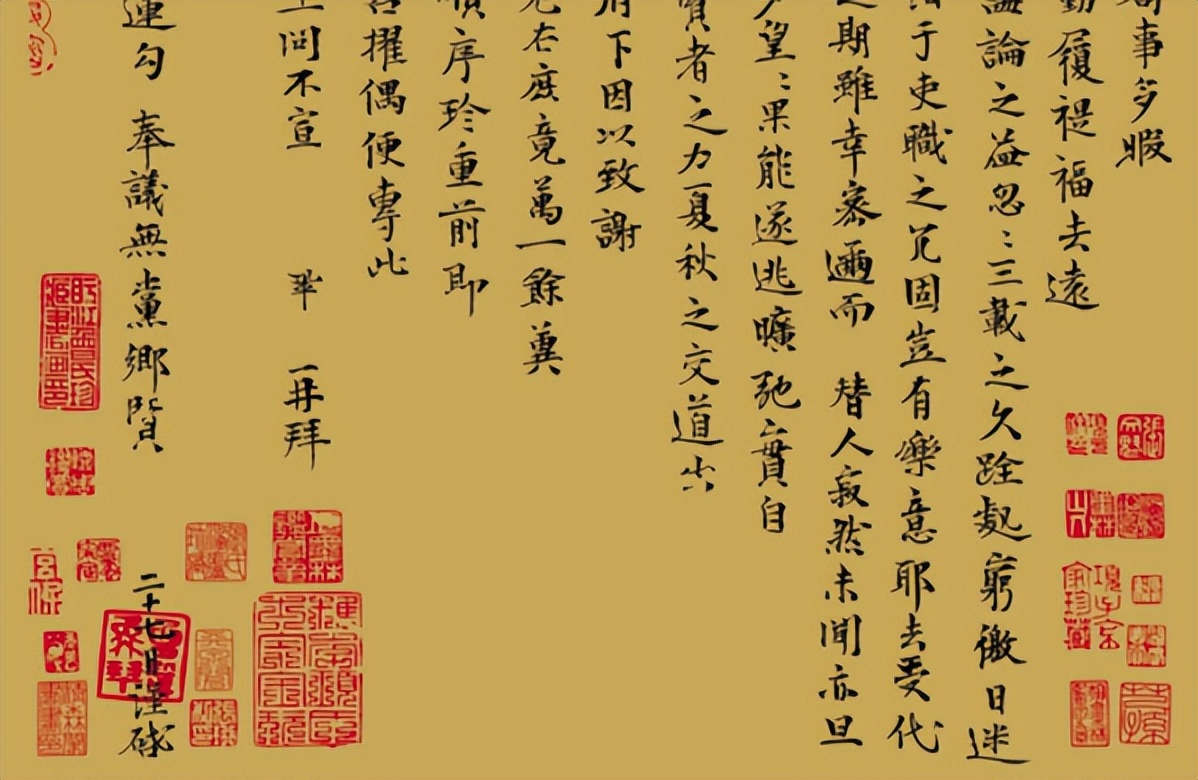 局事多暇
動履禔福去遠
誨論之益忽〻三載之久跧處窮徼日迷
汩于吏職之冗固豈有樂意耶去受代
之期雖幸密邇而 替人寂然未聞亦旦
夕望〻果能遂逃曠弛實自
賢者之力夏秋之交道出
府下因以致謝
左右庶竟萬一餘冀
順序珍重前即
召擢偶便專此
上問不宣 鞏 再拜
運勾 奉議無黨鄉賢 二十七日謹啟
項子京家珍藏